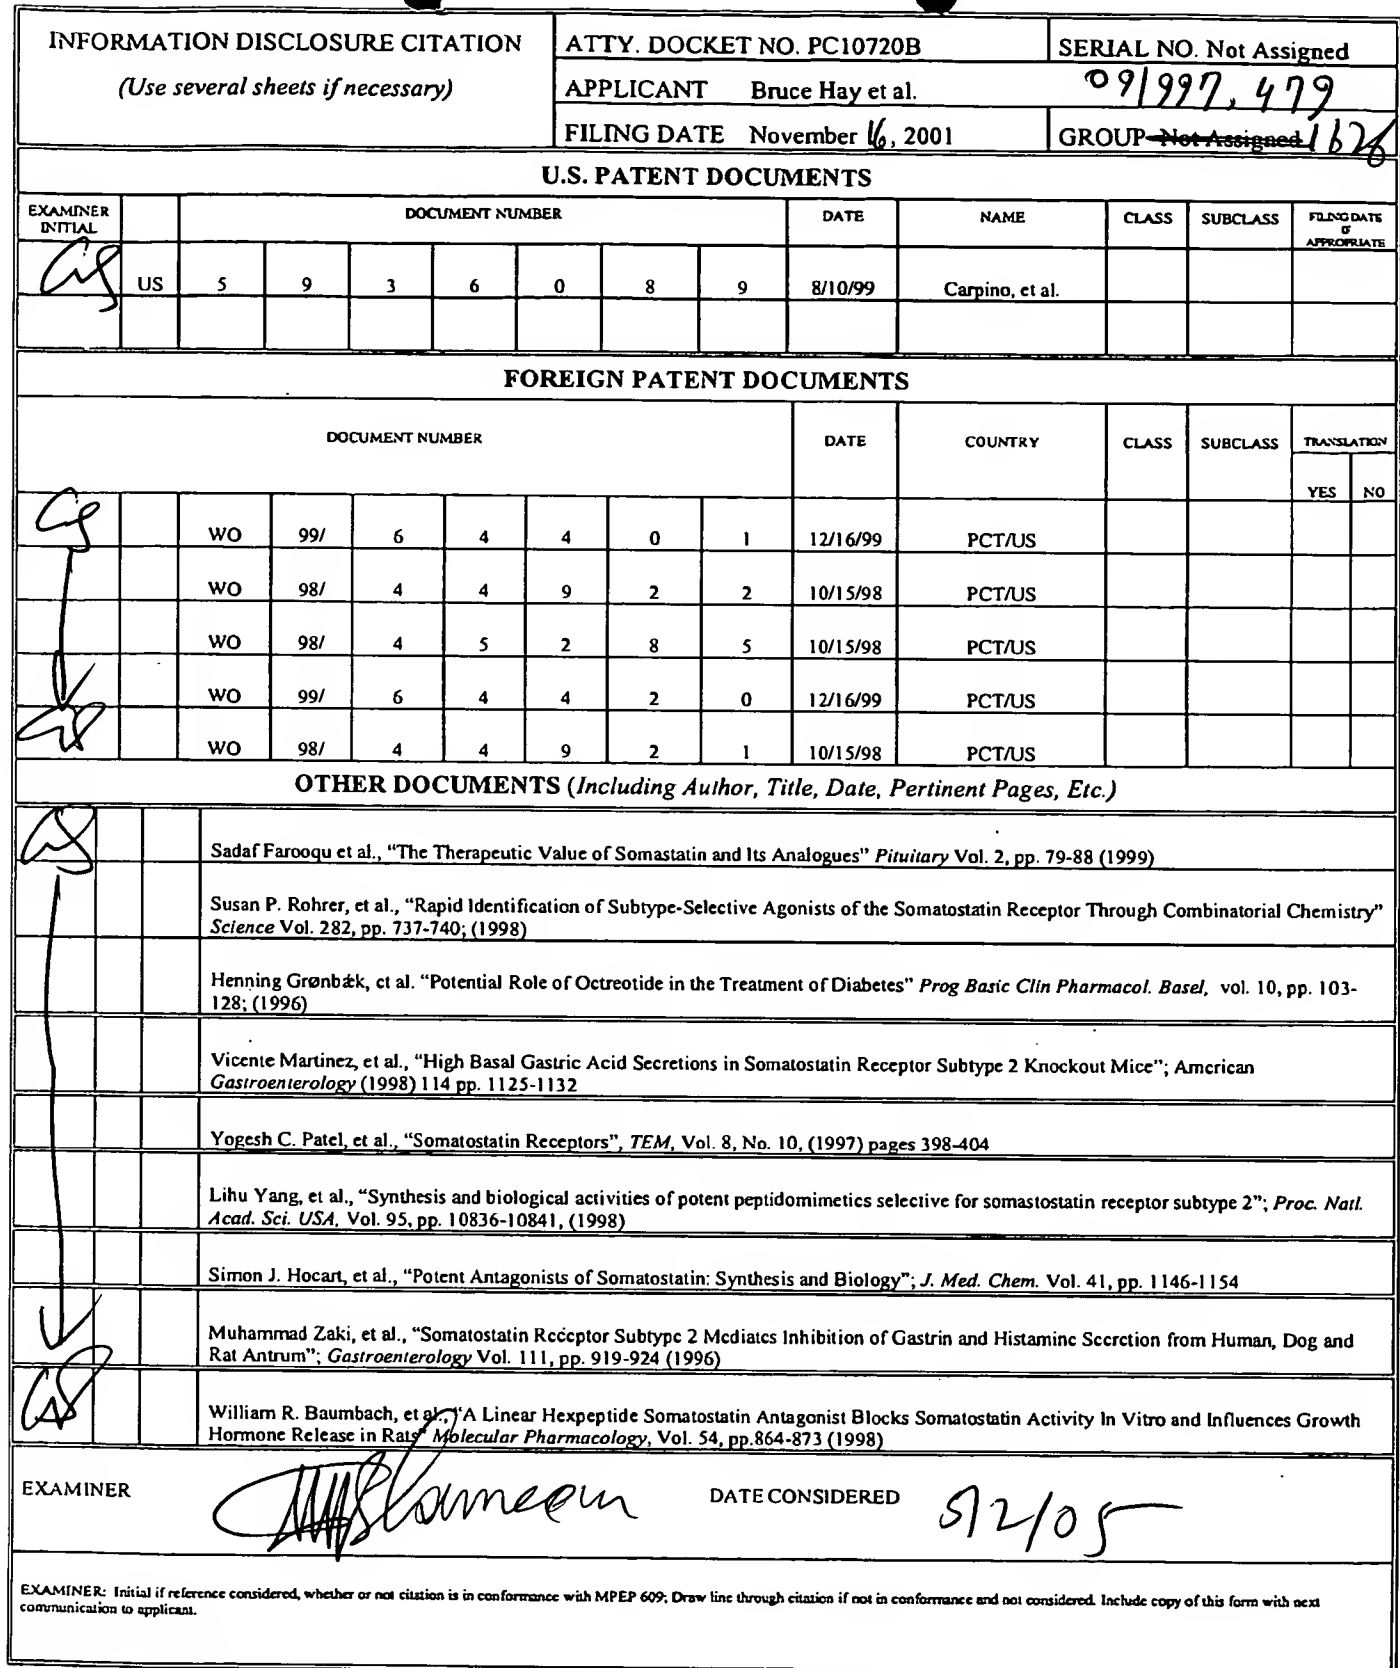 INFORMATION DISCLOSURE CITATION
(Use several sheets if necessary)
ATTY. DOCKET NO. PC10720B
SERIAL NO. Not Assigned
09/997,479
APPLICANT Bruce Hay et al.
FILING DATE November 16, 2001
GROUP Not Assigned 1626
U.S. PATENT DOCUMENTS
EXAMINER INITIAL DOCUMENT NUMBER DATE NAME CLASS SUBCLASS FILING DATE IF APPROPRIATE
US 5 9 3 6 0 8 9 8/10/99 Carpino, et al.
FOREIGN PATENT DOCUMENTS
DOCUMENT NUMBER DATE COUNTRY CLASS SUBCLASS TRANSLATION
YES NO
WO 99/ 6 4 4 0 1 12/16/99 PCT/US
WO 98/ 4 4 9 2 2 10/15/98 PCT/US
WO 98/ 4 5 2 8 5 10/15/98 PCT/US
WO 99/ 6 4 4 2 0 12/16/99 PCT/US
WO 98/ 4 4 9 2 1 10/15/98 PCT/US
OTHER DOCUMENTS (Including Author, Title, Date, Pertinent Pages, Etc.)
Sadaf Farooqu et al., “The Therapeutic Value of Somastatin and Its Analogues” Pituitary Vol. 2, pp. 79-88 (1999)
Susan P. Rohrer, et al., “Rapid Identification of Subtype-Selective Agonists of the Somatostatin Receptor Through Combinatorial Chemistry”
Science Vol. 282, pp. 737-740; (1998)
Henning Grønbæk, et al. “Potential Role of Octreotide in the Treatment of Diabetes” Prog Basic Clin Pharmacol. Basel, vol. 10, pp. 103-
128; (1996)
Vicente Martinez, et al., “High Basal Gastric Acid Secretions in Somatostatin Receptor Subtype 2 Knockout Mice”; American
Gastroenterology (1998) 114 pp. 1125-1132
Yogesh C. Patel, et al., “Somatostatin Receptors”, TEM, Vol. 8, No. 10, (1997) pages 398-404
Lihu Yang, et al., “Synthesis and biological activities of potent peptidomimetics selective for somastostatin receptor subtype 2”; Proc. Natl.
Acad. Sci. USA, Vol. 95, pp. 10836-10841, (1998)
Simon J. Hocart, et al., “Potent Antagonists of Somatostatin: Synthesis and Biology”; J. Med. Chem. Vol. 41, pp. 1146-1154
Muhammad Zaki, et al., “Somatostatin Receptor Subtype 2 Mediates Inhibition of Gastrin and Histamine Secretion from Human, Dog and
Rat Antrum”; Gastroenterology Vol. 111, pp. 919-924 (1996)
William R. Baumbach, et al., “A Linear Hexpeptide Somatostatin Antagonist Blocks Somatostatin Activity In Vitro and Influences Growth
Hormone Release in Rats” Molecular Pharmacology, Vol. 54, pp.864-873 (1998)
EXAMINER DATE CONSIDERED 5/2/05
EXAMINER: Initial if reference considered, whether or not citation is in conformance with MPEP 609; Draw line through citation if not in conformance and not considered. Include copy of this form with next
communication to applicant.